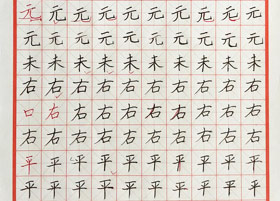 元元元元元元元元元元
元元元元元元元元元元
未未未未未未未未未未
右右右右右右右右右右
口右右右右右右右右右
右右右右右右右右右右
平平平平平平平平平平
平平平平平平平平平平